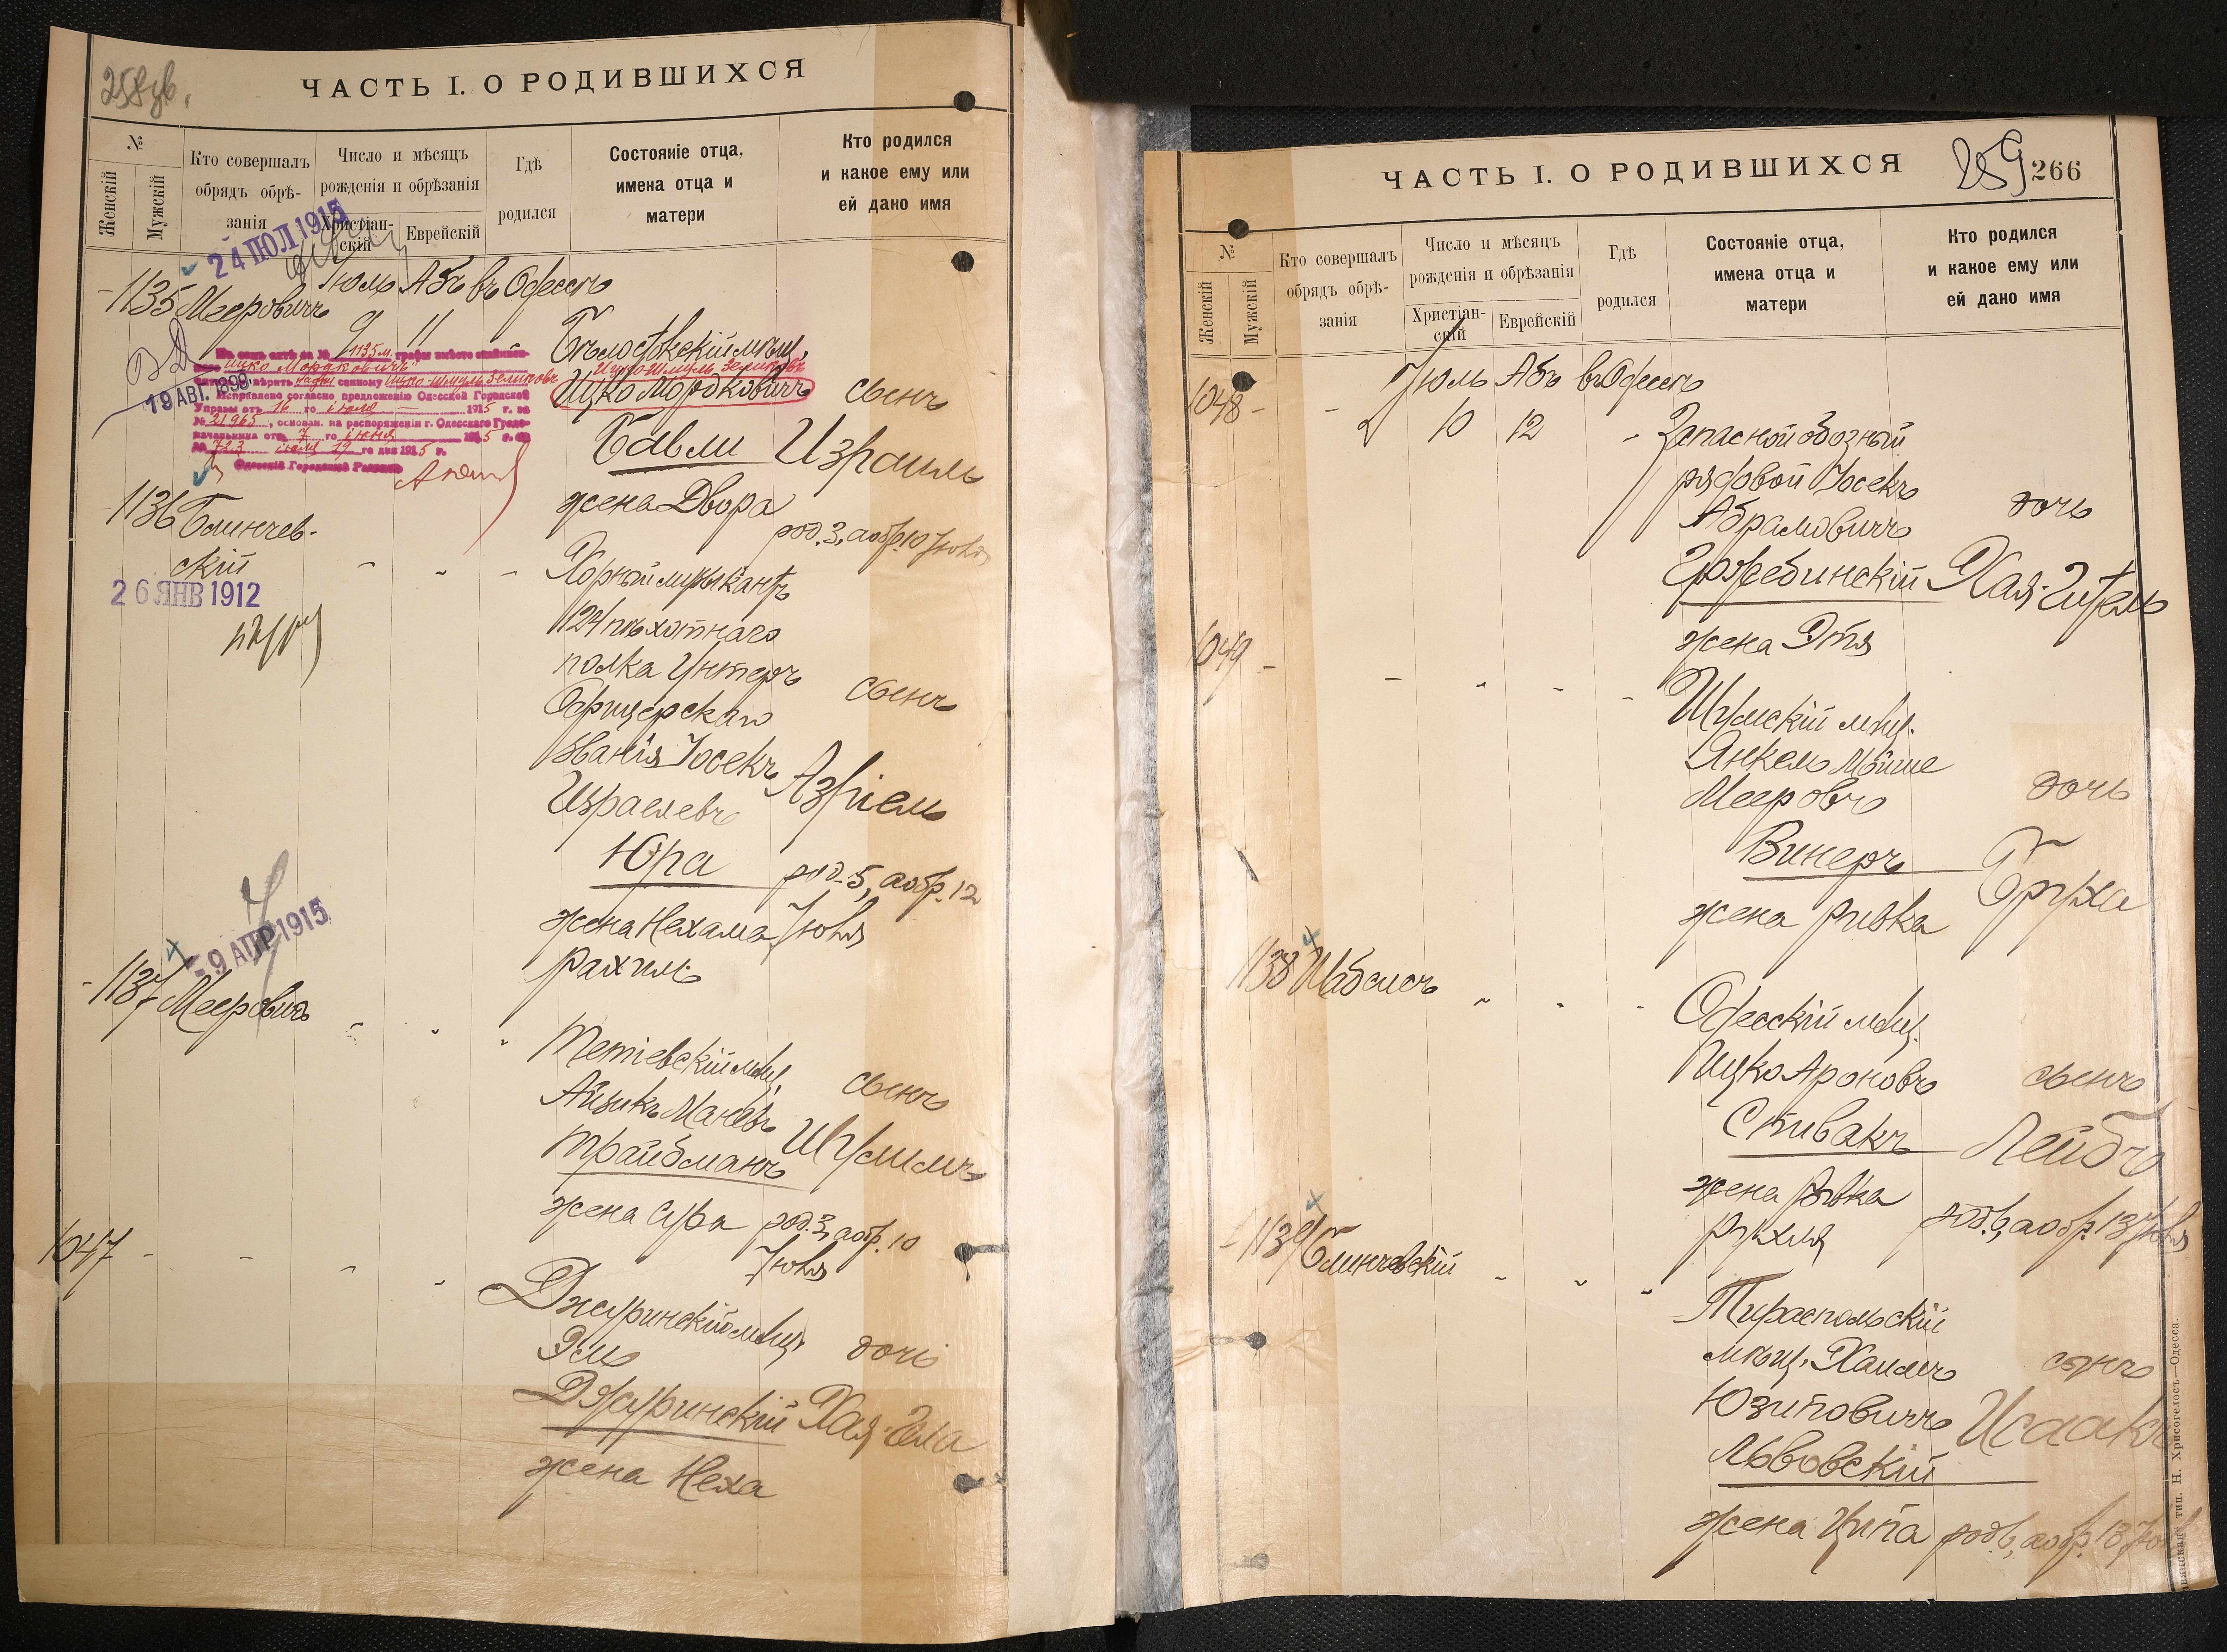 ЧАСТЬ I. О РОДИВШИХСЯ
№
Женскій
Мужскій
Кто совершалъ
обрядъ обрѣ-
занія
Число и мѣсяцъ
рожденія и обрѣзанія
Христіан-
скій
Еврейскій
Гдѣ
родился
Состояніе отца,
имена отца и
матери
Кто родился
и какое ему или
ей дано имя
24 ІЮЛ 1915
Іюль Абъ въ Одессѣ
1135 Мееровичъ
9 11
мѣщ.
Ицко-Шмуль Зеликовъ
Ицко Мордковичъ сынъ
Бавли Израиль
жена Двора
род. 3, а обр. 10 Іюля
1135 м. графы вмѣсто
Ицко Мордковичъ
Ицко-Шмуль Зеликовъ
Исправлено согласно предложенію Одесской Городской
Управы отъ 16 го іюля 1915 г. за
№ 21965, основан. на распоряженіи г. Одесскаго Градо-
начальника отъ 7 го іюня 1915 г. за
№ 723 іюля 19 го дня 1915 г.
Одесскій Городской Раввинъ
19 АВГ. 1899
1136 Блинчев-
скій
26 ЯНВ 1912
Хорный музыкантъ
124 пѣхотнаго
полка Унтеръ
Офицерскаго сынъ
званія Іосекъ
Израелевъ Азріель
Юра род. 5, а обр. 12
жена Нехама Іюля
Рахиль
9 АПР 1915
1137 Мееровичъ
Тетіевскій мѣщ. сынъ
Айзикъ Маневъ
Трайбманъ Шулимъ
жена Сура род. 3, а обр. 10
Іюля
1047
Джуринскій мѣщ.
Эль дочь
Джуринскій Хая-Гела
жена Неха
ЧАСТЬ I. О РОДИВШИХСЯ
259
266
№
Женскій
Мужскій
Кто совершалъ
обрядъ обрѣ-
занія
Число и мѣсяцъ
рожденія и обрѣзанія
Христіан-
скій
Еврейскій
Гдѣ
родился
Состояніе отца,
имена отца и
матери
Кто родился
и какое ему или
ей дано имя
Іюль Абъ въ Одессѣ
1048
10 12 Запасной обозный
рядовой Іосекъ
Абрамовичъ дочь
Гржебинскій Хая-Гитель
жена Этя
1049
Шумскій мѣщ.
Янкель Мойше
Мееровъ дочь
Винеръ Бруха
жена Ривка
1138 Шабсисъ
Одесскій мѣщ.
Ицко Ароновъ сынъ
Спивакъ Лейбъ
жена Ривка
Рухля род. 6, а обр. 13 Іюля
1139 Блинчевскій
Тираспольскій
мѣщ. Хаимъ сынъ
Юзиповичъ Исаакъ
Львовскій
жена Ципа род. 6, а обр. 13
тип. Н. Хрисогелосъ—Одесса.